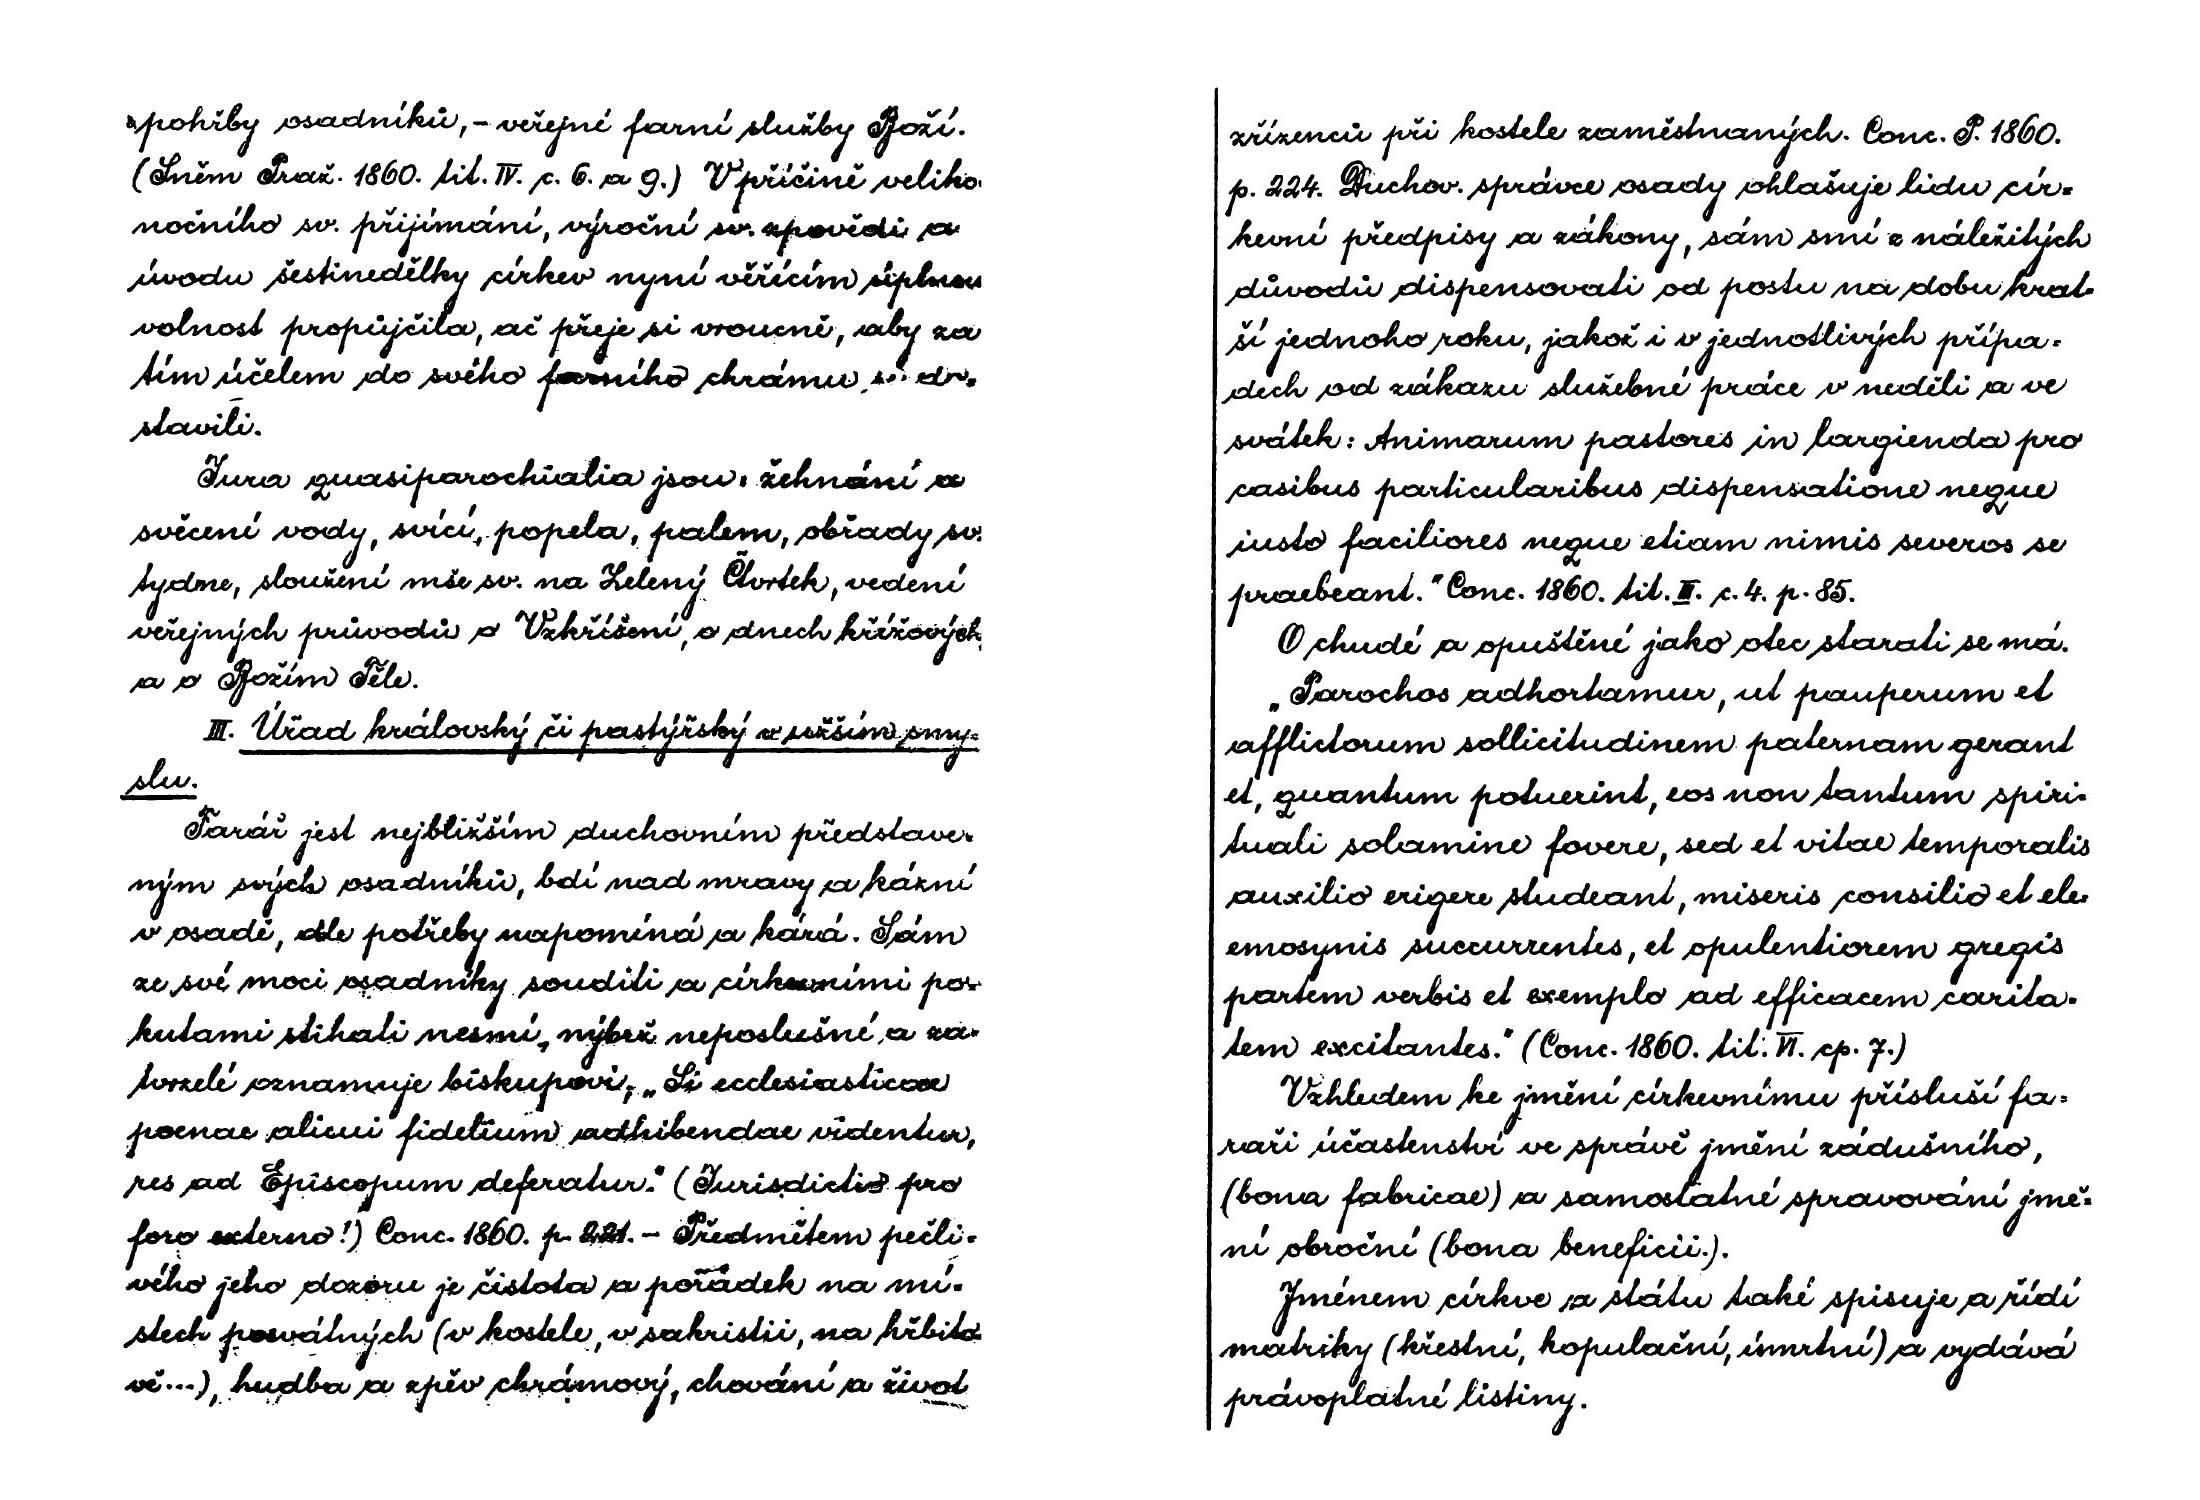 a pohřby osadníků, – veřejné farní služby Boží.
(Sněm Praž. 1860. tit. IV. c. 6. a 9.) V příčině veliko-
nočního sv. přijímání, výroční sv. zpovědi a
úvodu šestinedělky církev nyní věřícím úplnou
volnost propůjčila, ač přeje si vroucně, aby za
tím účelem do svého farního chrámu se do-
stavili.
Jura quasiparochialia jsou: žehnání a
svěcení vody, svící, popela, palem, obřady sv.
tydne, sloužení mše sv. na Zelený Čtvrtek, vedení
veřejných průvodů o Vzkříšení, o dnech křížových
a o Božím Těle.
III. Úřad královský či pastýřský v užším smy-
slu.
Farář jest nejbližším duchovním představe-
ným svých osadníků, bdí nad mravy a kázní
v osadě, dle potřeby napomíná a kárá. Sám
ze své moci osadníky souditi a církevními po-
kutami stihati nesmí, nýbrž neposlušné a za-
tvrzelé oznamuje biskupovi; „Si ecclesiasticae
poenae alicui fidelium adhibendae videntur,
res ad Episcopum deferatur." (Jurisdictio pro
foro externo!) Conc. 1860. p. 221. – Předmětem pečli-
vého jeho dozoru je čistota a pořádek na mí-
stech posvátných (v kostele, v sakristii, na hřbito-
vě...), hudba a zpěv chrámový, chování a život
zřízenců při kostele zaměstnaných. Conc. P. 1860.
p. 224. Duchov. správce osady ohlašuje lidu cír-
kevní předpisy a zákony, sám smí z náležitých
důvodů dispensovati od postu na dobu krat-
ší jednoho roku, jakož i v jednotlivých přípa-
dech od zákazu služebné práce v neděli a ve
svátek: Animarum pastores in largienda pro
casibus particularibus dispensatione neque
iusto faciliores neque etiam nimis severos se
praebeant." Conc. 1860. tit. III. c. 4. p. 85.
O chudé a opuštěné jako otec starati se má.
„Parochos adhortamur, ut pauperum et
afflictorum sollicitudinem paternam gerant
et, quantum potuerint, eos non tantum spiri-
tuali solamine fovere, sed et vitae temporalis
auxilio erigere studeant, miseris consilio et ele-
emosynis succurrentes, et opulentiorem gregis
partem verbis et exemplo ad efficacem carita-
tem excitantes." (Conc. 1860. tit. VI. cp. 7.)
Vzhledem ke jmění církevnímu přísluší fa-
raři účastenství ve správě jmění zádušního,
(bona fabricae) a samostatné spravování jmě-
ní obroční (bona beneficii.).
Jménem církve a státu také spisuje a řídí
matriky (křestní, kopulační, úmrtní) a vydává
právoplatné listiny.